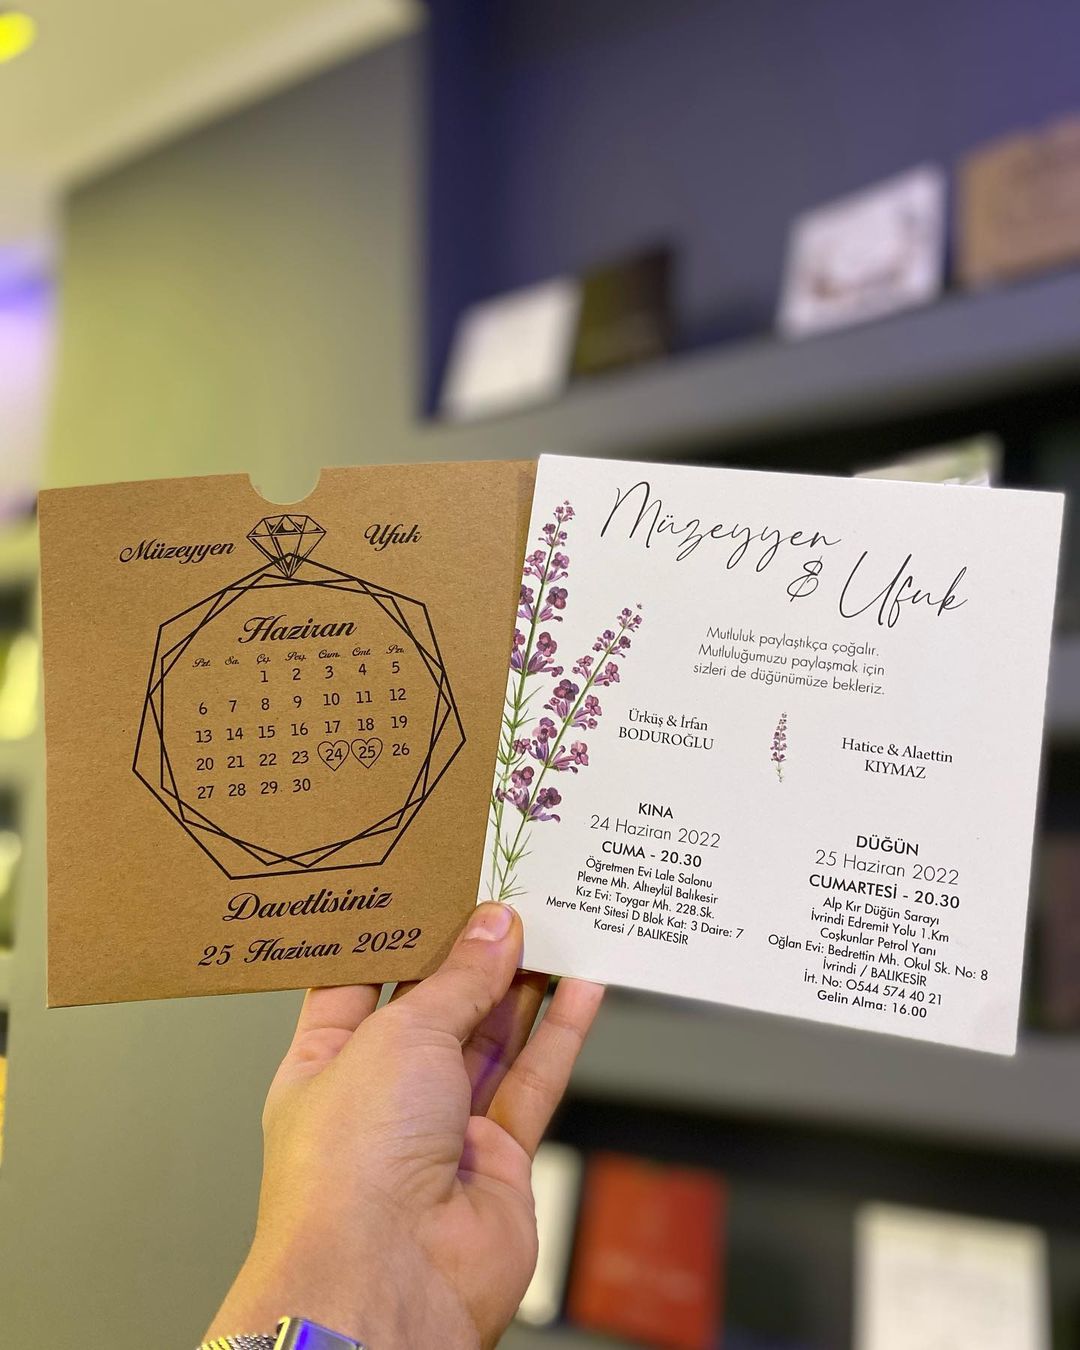 Müzeyyen Ufuk
Haziran
Pzt. Sa. Çş. Peş. Cum. Cmt. Pzr.
1 2 3 4 5
6 7 8 9 10 11 12
13 14 15 16 17 18 19
20 21 22 23 24 25 26
27 28 29 30
Davetlisiniz
25 Haziran 2022
Müzeyyen
& Ufuk
Mutluluk paylaştıkça çoğalır.
Mutluluğumuzu paylaşmak için
sizleri de düğünümüze bekleriz.
Ürküş & İrfan
BODUROĞLU
Hatice & Alaettin
KIYMAZ
KINA
24 Haziran 2022
CUMA - 20.30
Öğretmen Evi Lale Salonu
Plevne Mh. Altıeylül Balıkesir
Kız Evi: Toygar Mh. 228.Sk.
Merve Kent Sitesi D Blok Kat: 3 Daire: 7
Karesi / BALIKESİR
DÜĞÜN
25 Haziran 2022
CUMARTESİ - 20.30
Alp Kır Düğün Sarayı
İvrindi Edremit Yolu 1.Km
Coşkunlar Petrol Yanı
Oğlan Evi: Bedrettin Mh. Okul Sk. No: 8
İvrindi / BALIKESİR
İrt. No: 0544 574 40 21
Gelin Alma: 16.00